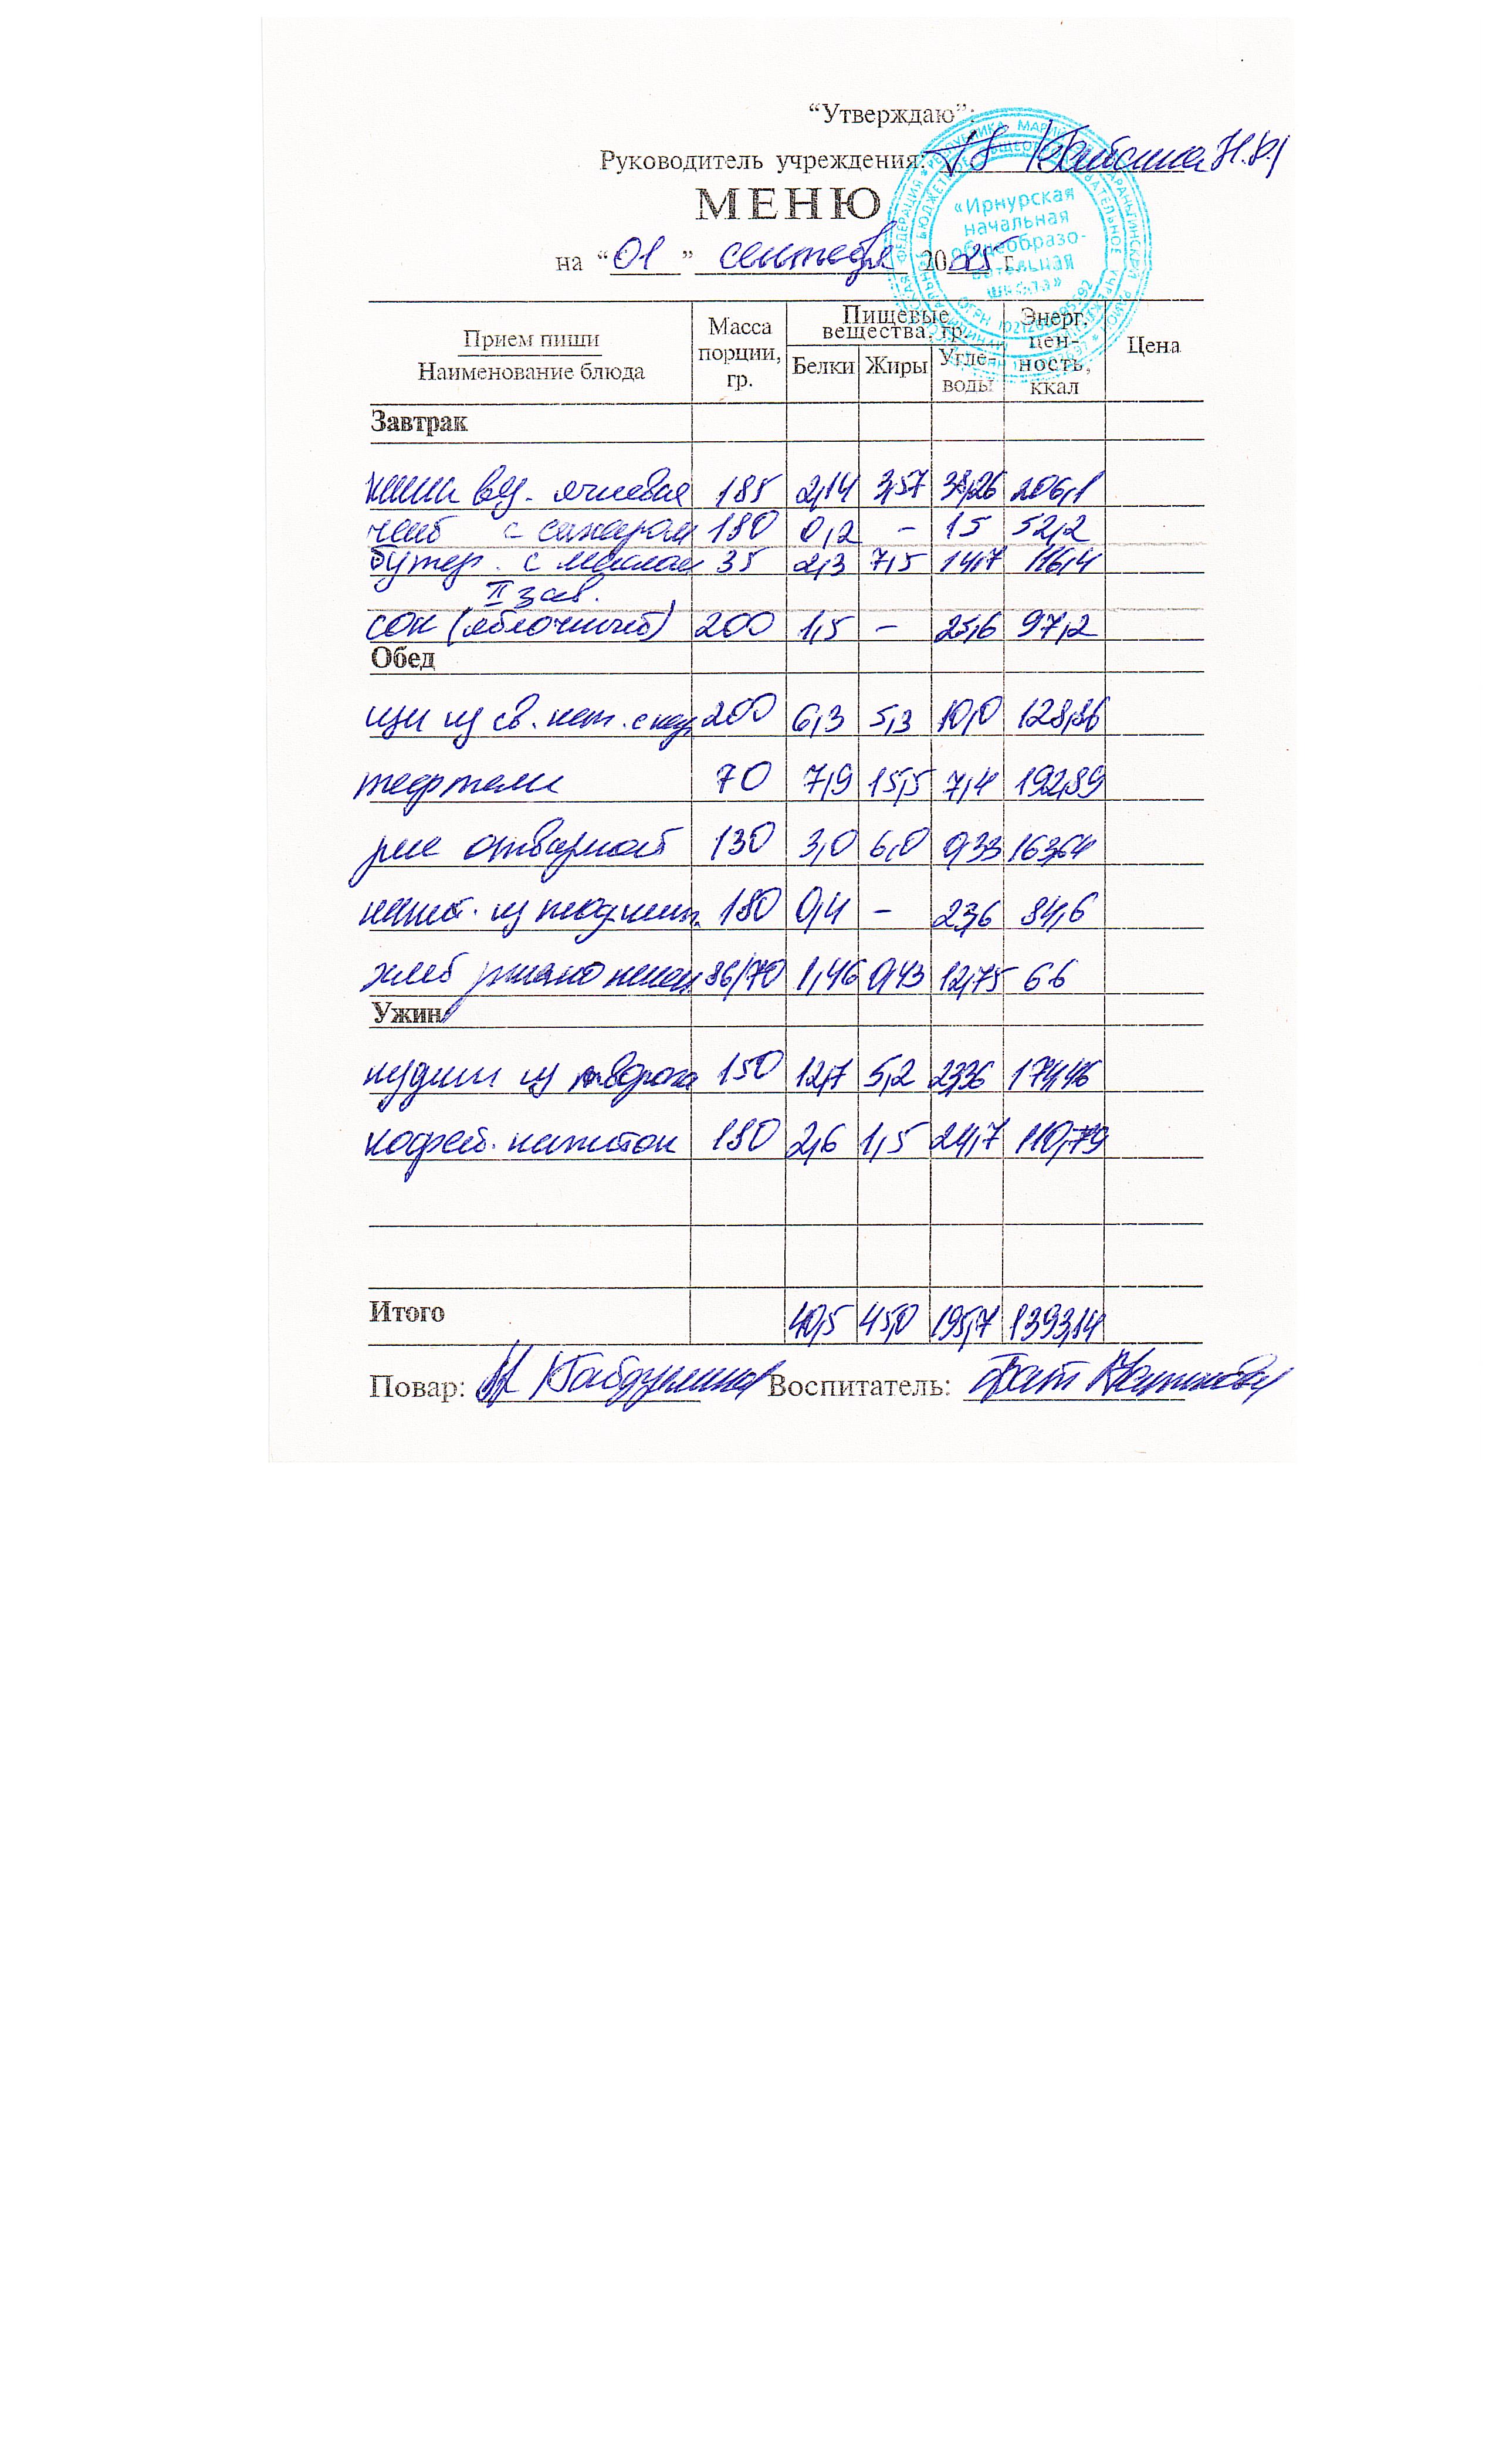 “Утверждаю”:
Руководитель учреждения:
МЕНЮ
на “01” сентября 2025 г.
«Ирнурская
начальная
общеобразо-
вательная
школа»
Прием пищи
Наименование блюда
Масса порции, гр.
Пищевые вещества, гр.
Белки Жиры Угле-воды
Энерг. цен-ность, ккал
Цена
Завтрак
каша вяз. ячневая 185 2,14 3,57 206,1
чай с сахаром 180 0,2 – 15 52,2
бутер. с маслом 35 2,3 7,5 14,7 116,4
II зав.
сок (яблочный) 200 1,5 – 25,6 97,2
Обед
щи из св. кап. 200 6,3 5,3 10,0 128,86
тефтели 70 7,9 15,5 7,4 192,89
рис отварной 130 3,0 6,0 0,33 163,64
180 0,4 – 23,6 84,6
хлеб ржано 36/70 1,46 0,43 12,75 66
Ужин
пудинг из творога 150 12,7 5,2 23,36 174,46
кофей. напиток 180 2,6 1,5 24,7 110,79
Итого 40,5 45,0 195,7 1393,14
Повар: Воспитатель: